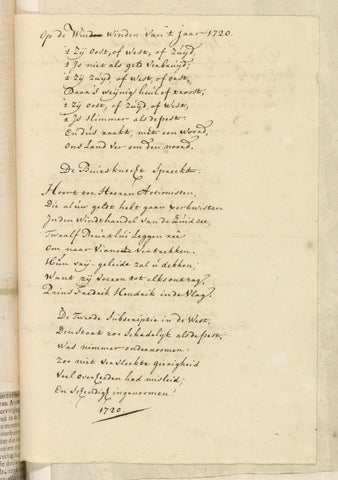 Op de Winden van 't Jaar 1720.
't Zÿ Oost, of West, of Zuÿd,
't Is niet als gelt verbruÿd,
't zÿ zuÿd, of West, of oost,
Daar's weÿnig heul of troost;
't zÿ Oost, of zuÿd, of West,
't Is slimmer als de pest.
En dus raakt, met een Woord,
Ons Land ver om den noord.
De Beursknecht Spreekt.
Hoort toe Heeren Actionisten,
Die al uw geld hebt gaan verkwisten
In den Windhandel van de Zuid zee,
Twaalf leggen reê
Om naar Vianen te vertrekken.
Hun vrÿ-geleide zal u dekken,
Want zÿ voeren tot elks ontzag,
Prins Fredrik Hendrik in de Vlag.
De Tweede Subscriptie in de West,
Den Staat zoo Schadelÿk als de pest,
Was nimmer ondernoomen
Zoo niet vervloekte gierigheid
Veel Overheeden had misleid,
En Schendig ingenoomen!
1720.